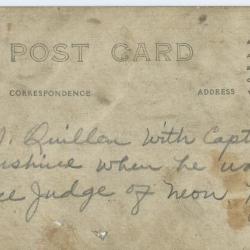 POST CARD
CORRESPONDENCE ADDRESS
Quillen with Capt
nshine when he wa
ce Judge of Neon,